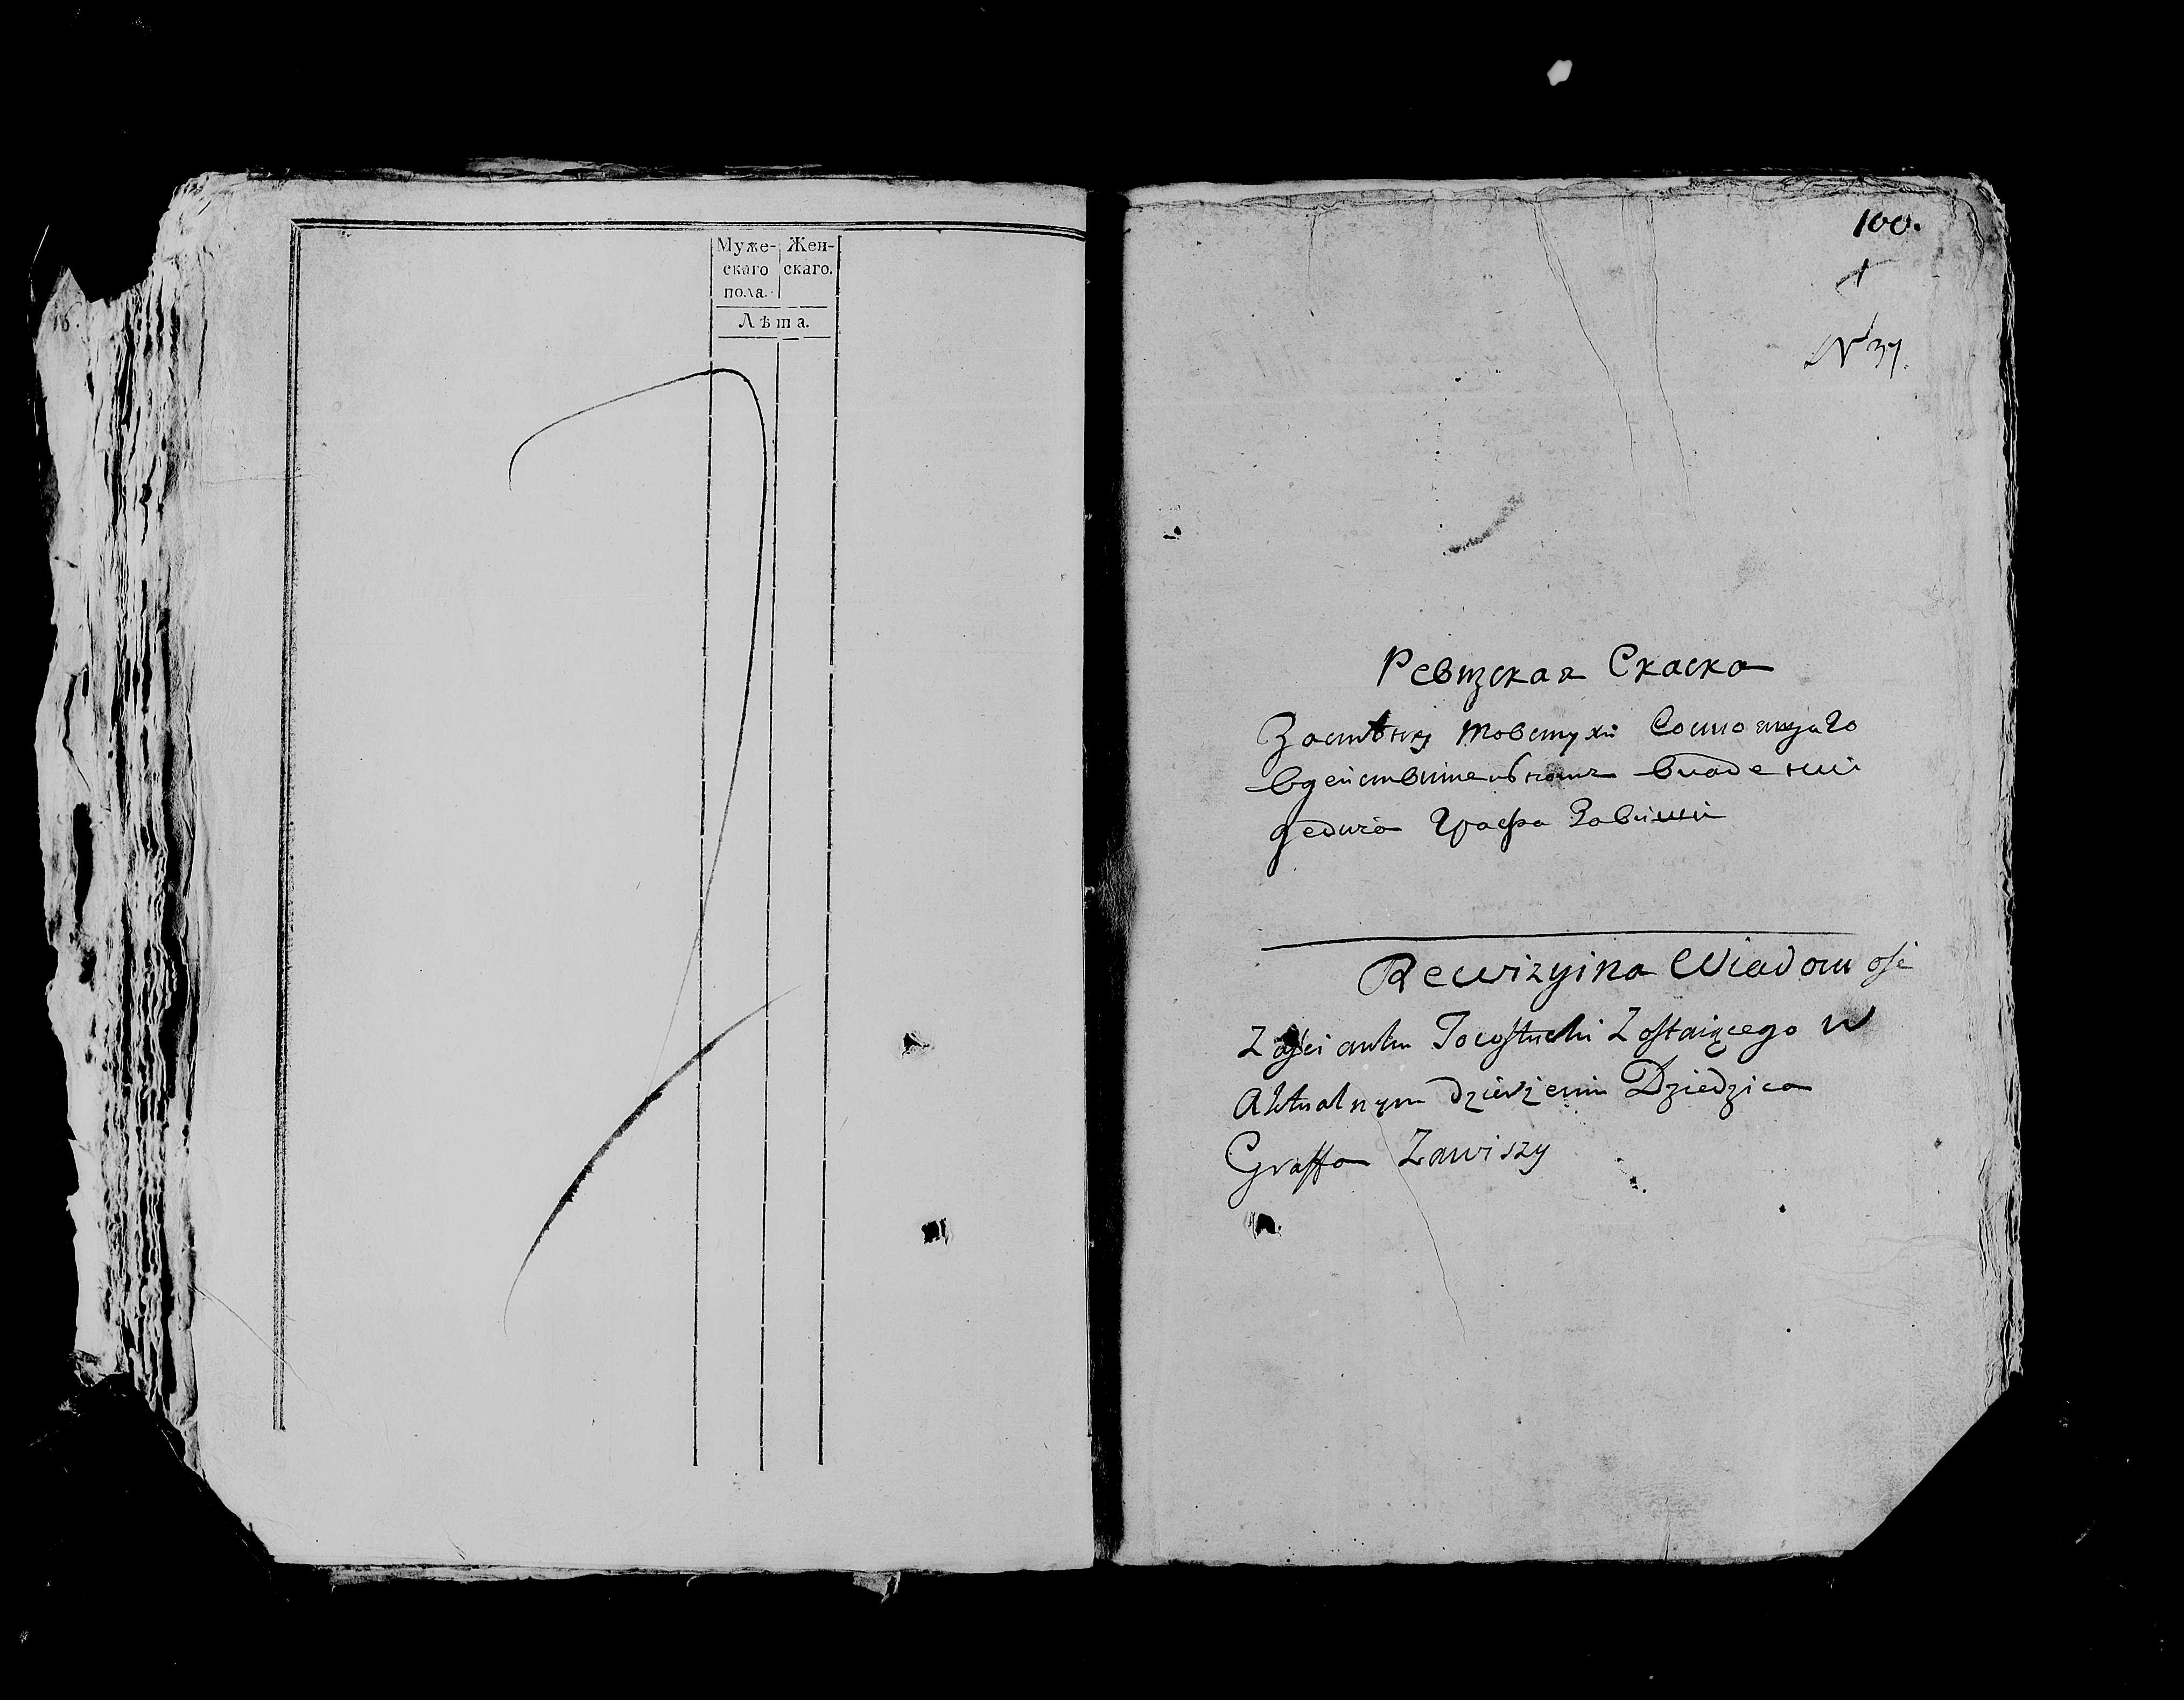 Муже-
скаго
пола.
Жен-
скаго.
Лѣта.
100.
N 37.
Ревизская Скаска
Застѣнку Товстухи Состоящаго
вдействительномъ владении
дедича Графа Завиши
Rewizyina Wiadomość
Zaścianku Towstuchi Zostaiącego w
Aktualnym dzierżeniu Dziedzica
Graffa Zawiszy